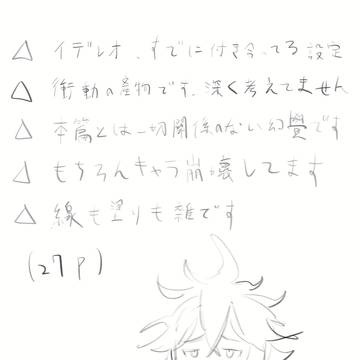 △ イデレオ、すでに付き合ってる設定
△ 衝動の産物です、深く考えてません
△ 本篇とは一切関係のない幻覺です
△ もちろんキャラ崩壊してます
△ 線も塗りも雑です
(27P)